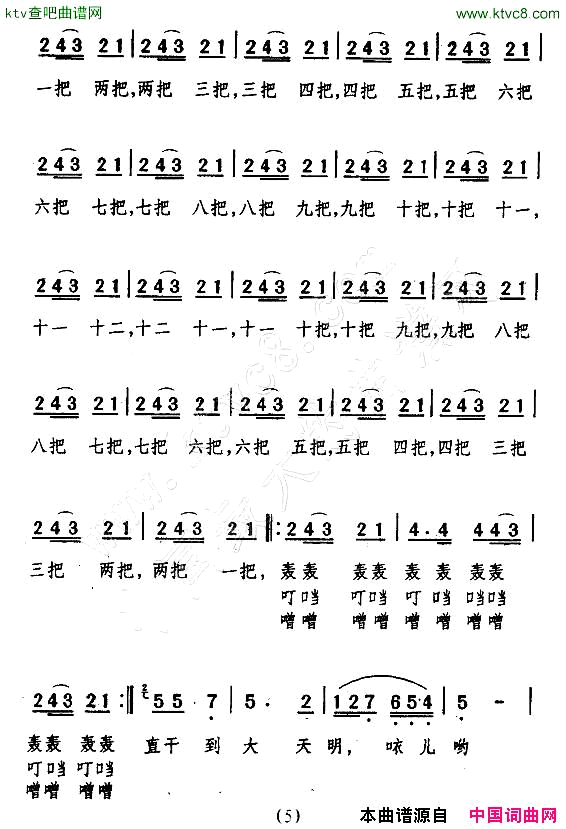 ktv查吧曲谱网 www.ktvc8.com
2 4 3 2 1 | 2 4 3 2 1 | 2 4 3 2 1 | 2 4 3 2 1 | 2 4 3 2 1 |
一把 两把,两把 三把,三把 四把,四把 五把,五把 六把
2 4 3 2 1 | 2 4 3 2 1 | 2 4 3 2 1 | 2 4 3 2 1 | 2 4 3 2 1 |
六把 七把,七把 八把,八把 九把,九把 十把,十把 十一,
2 4 3 2 1 | 2 4 3 2 1 | 2 4 3 2 1 | 2 4 3 2 1 | 2 4 3 2 1 |
十一 十二,十二 十一,十一 十把,十把 九把,九把 八把
2 4 3 2 1 | 2 4 3 2 1 | 2 4 3 2 1 | 2 4 3 2 1 | 2 4 3 2 1 |
八把 七把,七把 六把,六把 五把,五把 四把,四把 三把
2 4 3 2 1 | 2 4 3 2 1 |: 2 4 3 2 1 | 4. 4 4 4 3 |
三把 两把,两把 一把, 轰轰 轰轰 轰轰 轰轰
叮当 叮当 叮当
噌噌 噌噌 噌噌 噌噌
2 4 3 2 1 :| 5 5 7 | 5. 2 | 1 2 7 6 5 4 | 5 - |
轰轰 轰轰 直干 到 大 天 明, 咴 儿 哟
叮当 叮当
噌噌 噌噌
(5) 本曲谱源自 中国词曲网